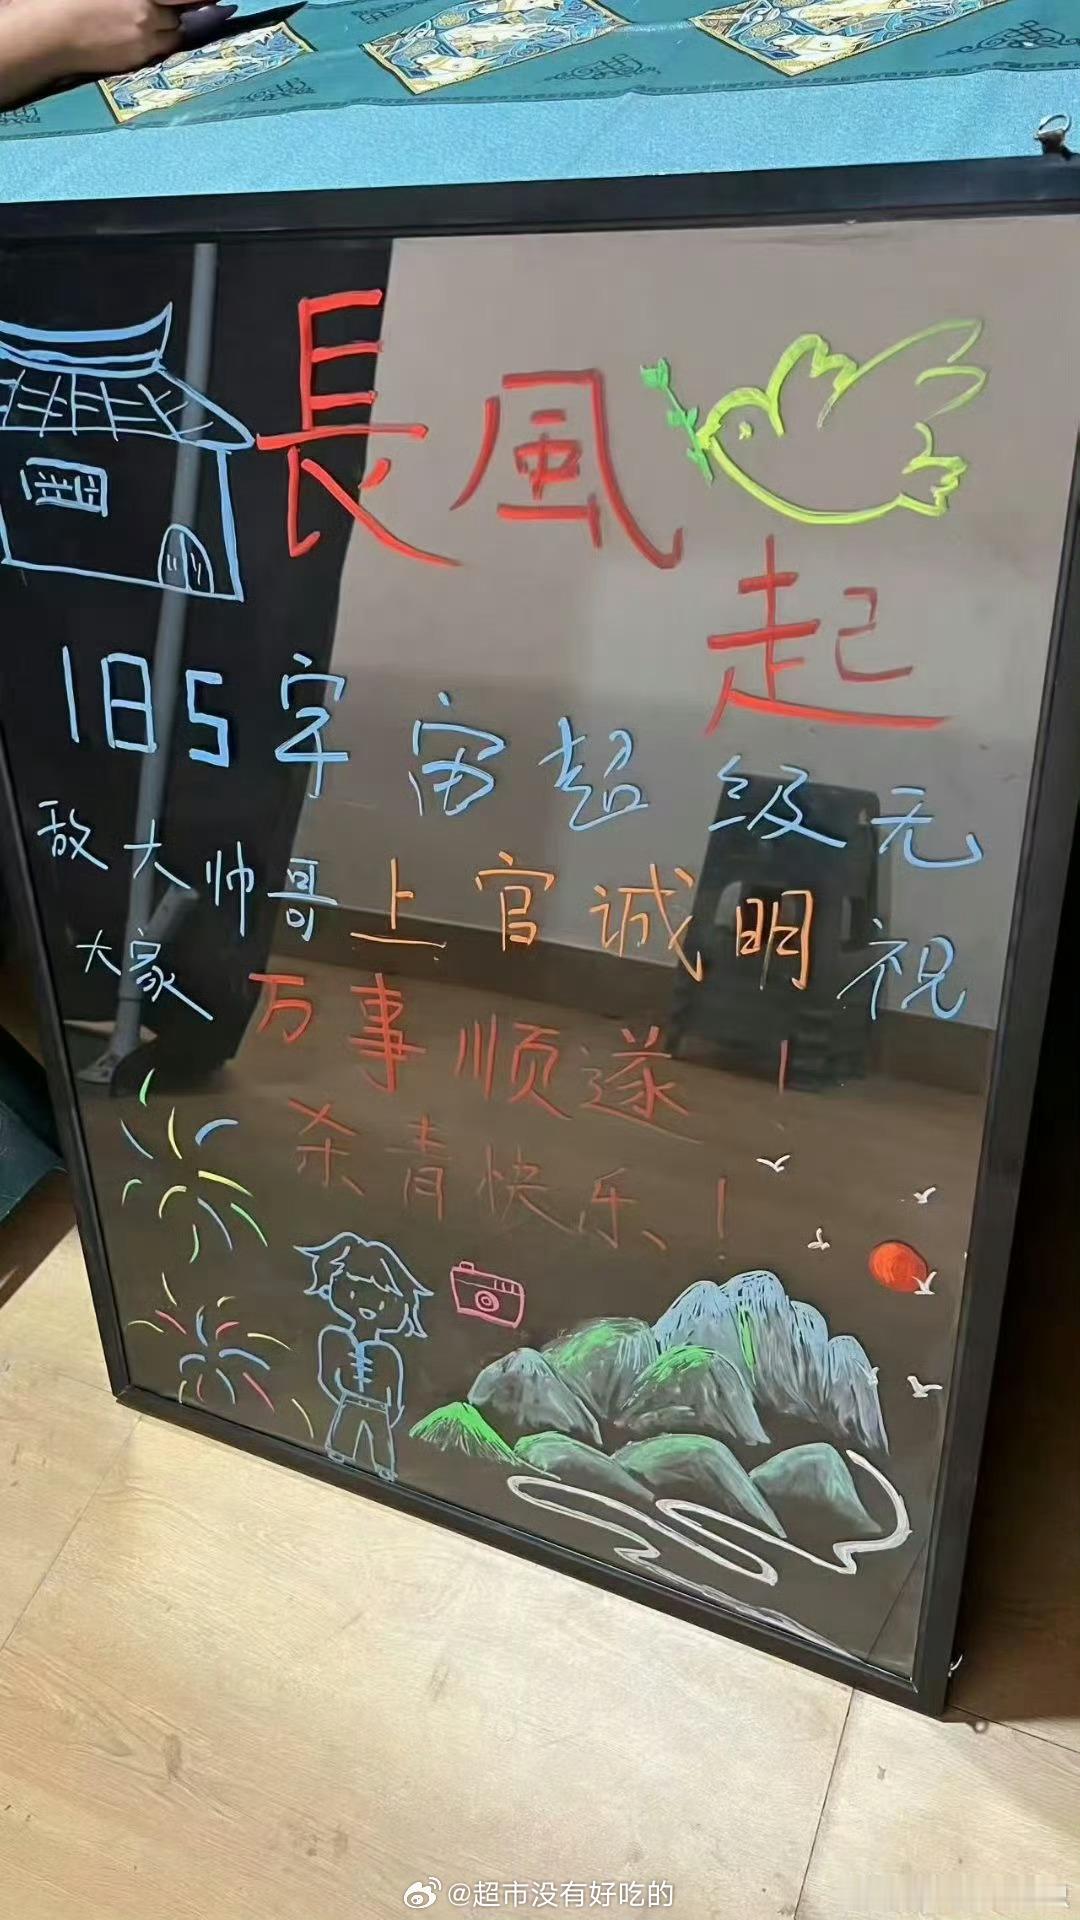 長風
起
185宇宙超级无
敌大帅哥上官诚明祝
大家万事顺遂！
杀青快乐！
@超市没有好吃的